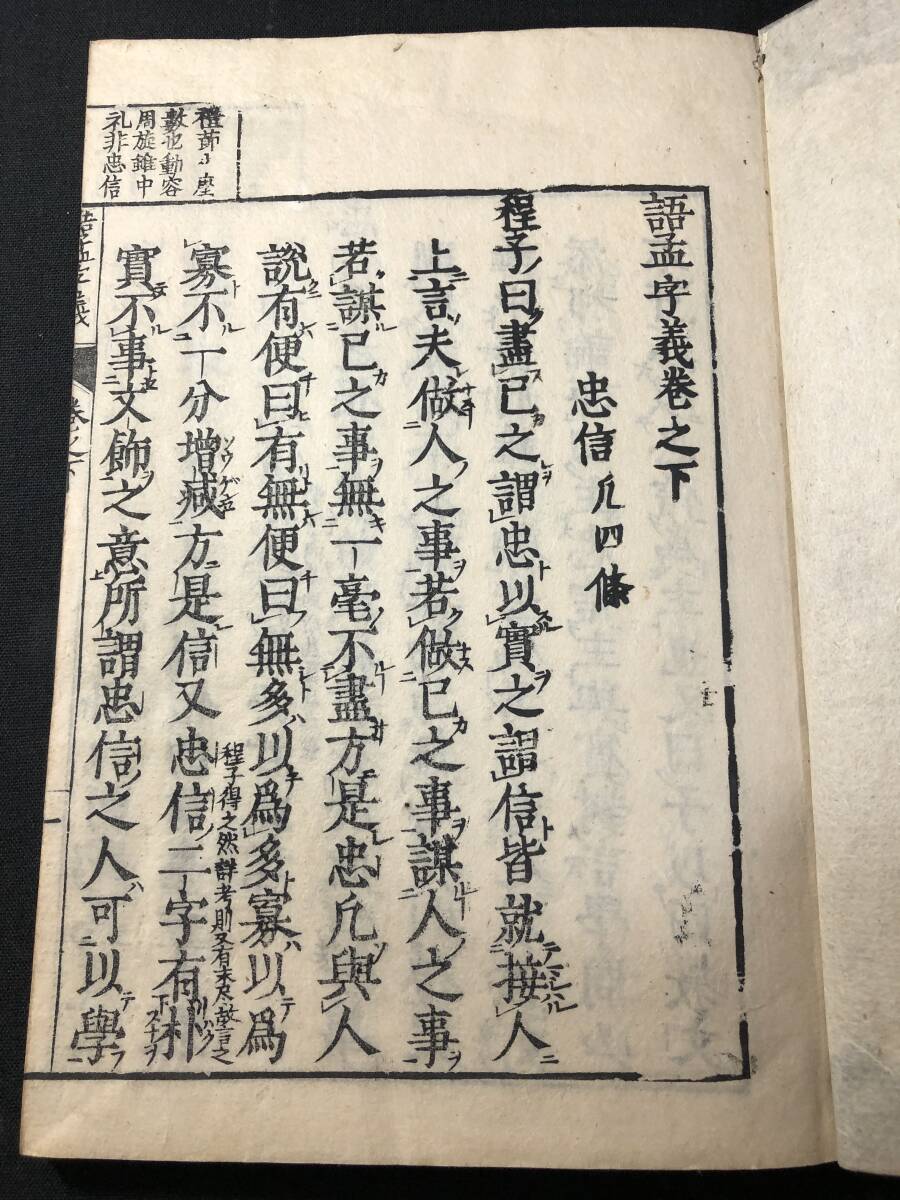 語孟字義卷之下
忠信凡四條
程子曰盡己之謂忠以實之謂信皆就接人
上言夫做人之事若做己之事謀人之事
若謀己之事無一毫不盡方是忠凡與人
說有便曰有無便曰無多以爲多寡以爲
寡不一分增減方是信又忠信二字有朴
程子得之然詳考則又有未尽故言之
實不事文飾之意所謂忠信之人可以學
禮節小座
數也動容
周旋雖中
礼非忠信
語孟字義
卷之下
一